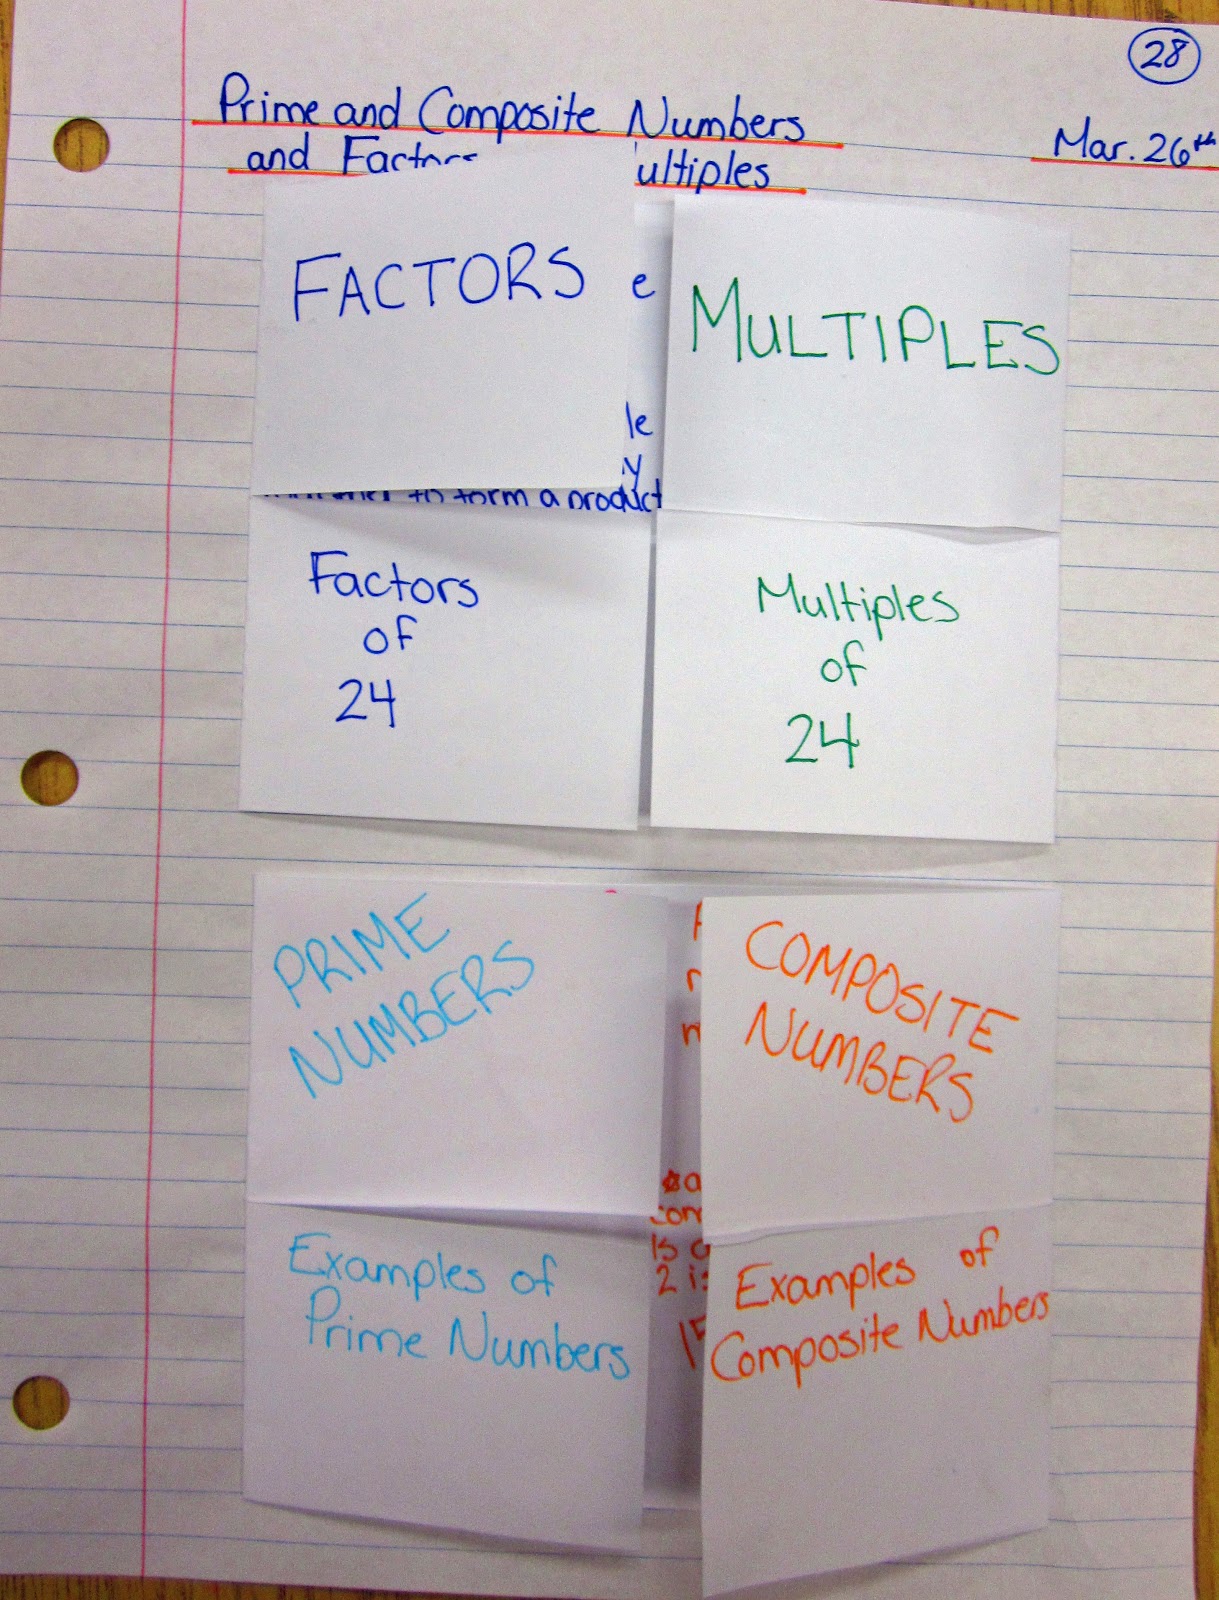 28
Prime and Composite Numbers
Mar. 26th
and Factors ultiples
FACTORS
e
MULTIPLES
le
y
to form a product
Factors
of
24
Multiples
of
24
PRIME
NUMBERS
COMPOSITE
NUMBERS
Examples of
Prime Numbers
is
2 is
Examples of
Composite Numbers